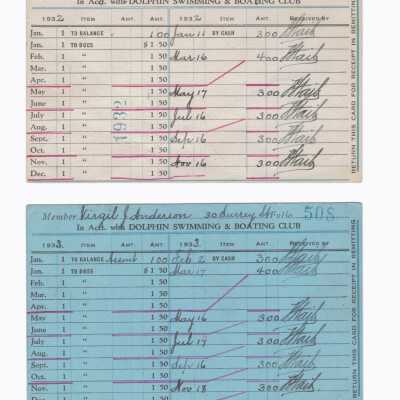 In Acct. with DOLPHIN SWIMMING & BOATING CLUB
1932 ITEM AMT. AMT. 1932 ITEM AMT. RECEIVED BY
Jan. 1 TO BALANCE 1 00 Jan 11 BY CASH 3 00
Jan. 1 TO DUES $ 1 50
Feb. 1 " 1 50 Mar 16 4 00
Mar. 1 " 1 50
Apr. 1 " 1 50
May 1 " 1 50 May 17 3 00
June 1 " 1 50
July 1 " 1 50 Jul 16 3 00
Aug. 1 " 1 50
Sept. 1 " 1 50 Sep 16 3 00
Oct. 1 " 1 50
Nov. 1 " 1 50 Nov 16 3 00
Dec. 1 " 1 50
1932
RETURN THIS CARD FOR RECEIPT IN REMITTING
Member Virgil J. Anderson 30 Surrey St Folio 508
In Acct. with DOLPHIN SWIMMING & BOATING CLUB
1933. ITEM AMT. AMT. 1933. ITEM AMT. RECEIVED BY
Jan. 1 TO BALANCE 1 00 Feb 2 BY CASH 3 00
Jan. 1 TO DUES $ 1 50 Mar 17 4 00
Feb. 1 " 1 50
Mar. 1 " 1 50
Apr. 1 " 1 50
May 1 " 1 50 May 16 3 00
June 1 " 1 50
July 1 " 1 50 Jul 17 3 00
Aug. 1 " 1 50
Sept. 1 " 1 50 Sep 16 3 00
Oct. 1 " 1 50
Nov. 1 " 1 50 Nov 18 3 00
Dec. 1 " 1 50
RETURN THIS CARD FOR RECEIPT IN REMITTING